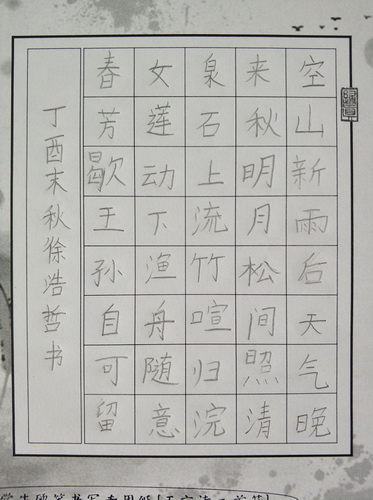 空山新雨后天气晚
来秋明月松间照清
泉石上流竹喧归浣
女莲动下渔舟随意
春芳歇王孙自可留
丁酉末秋徐浩哲书